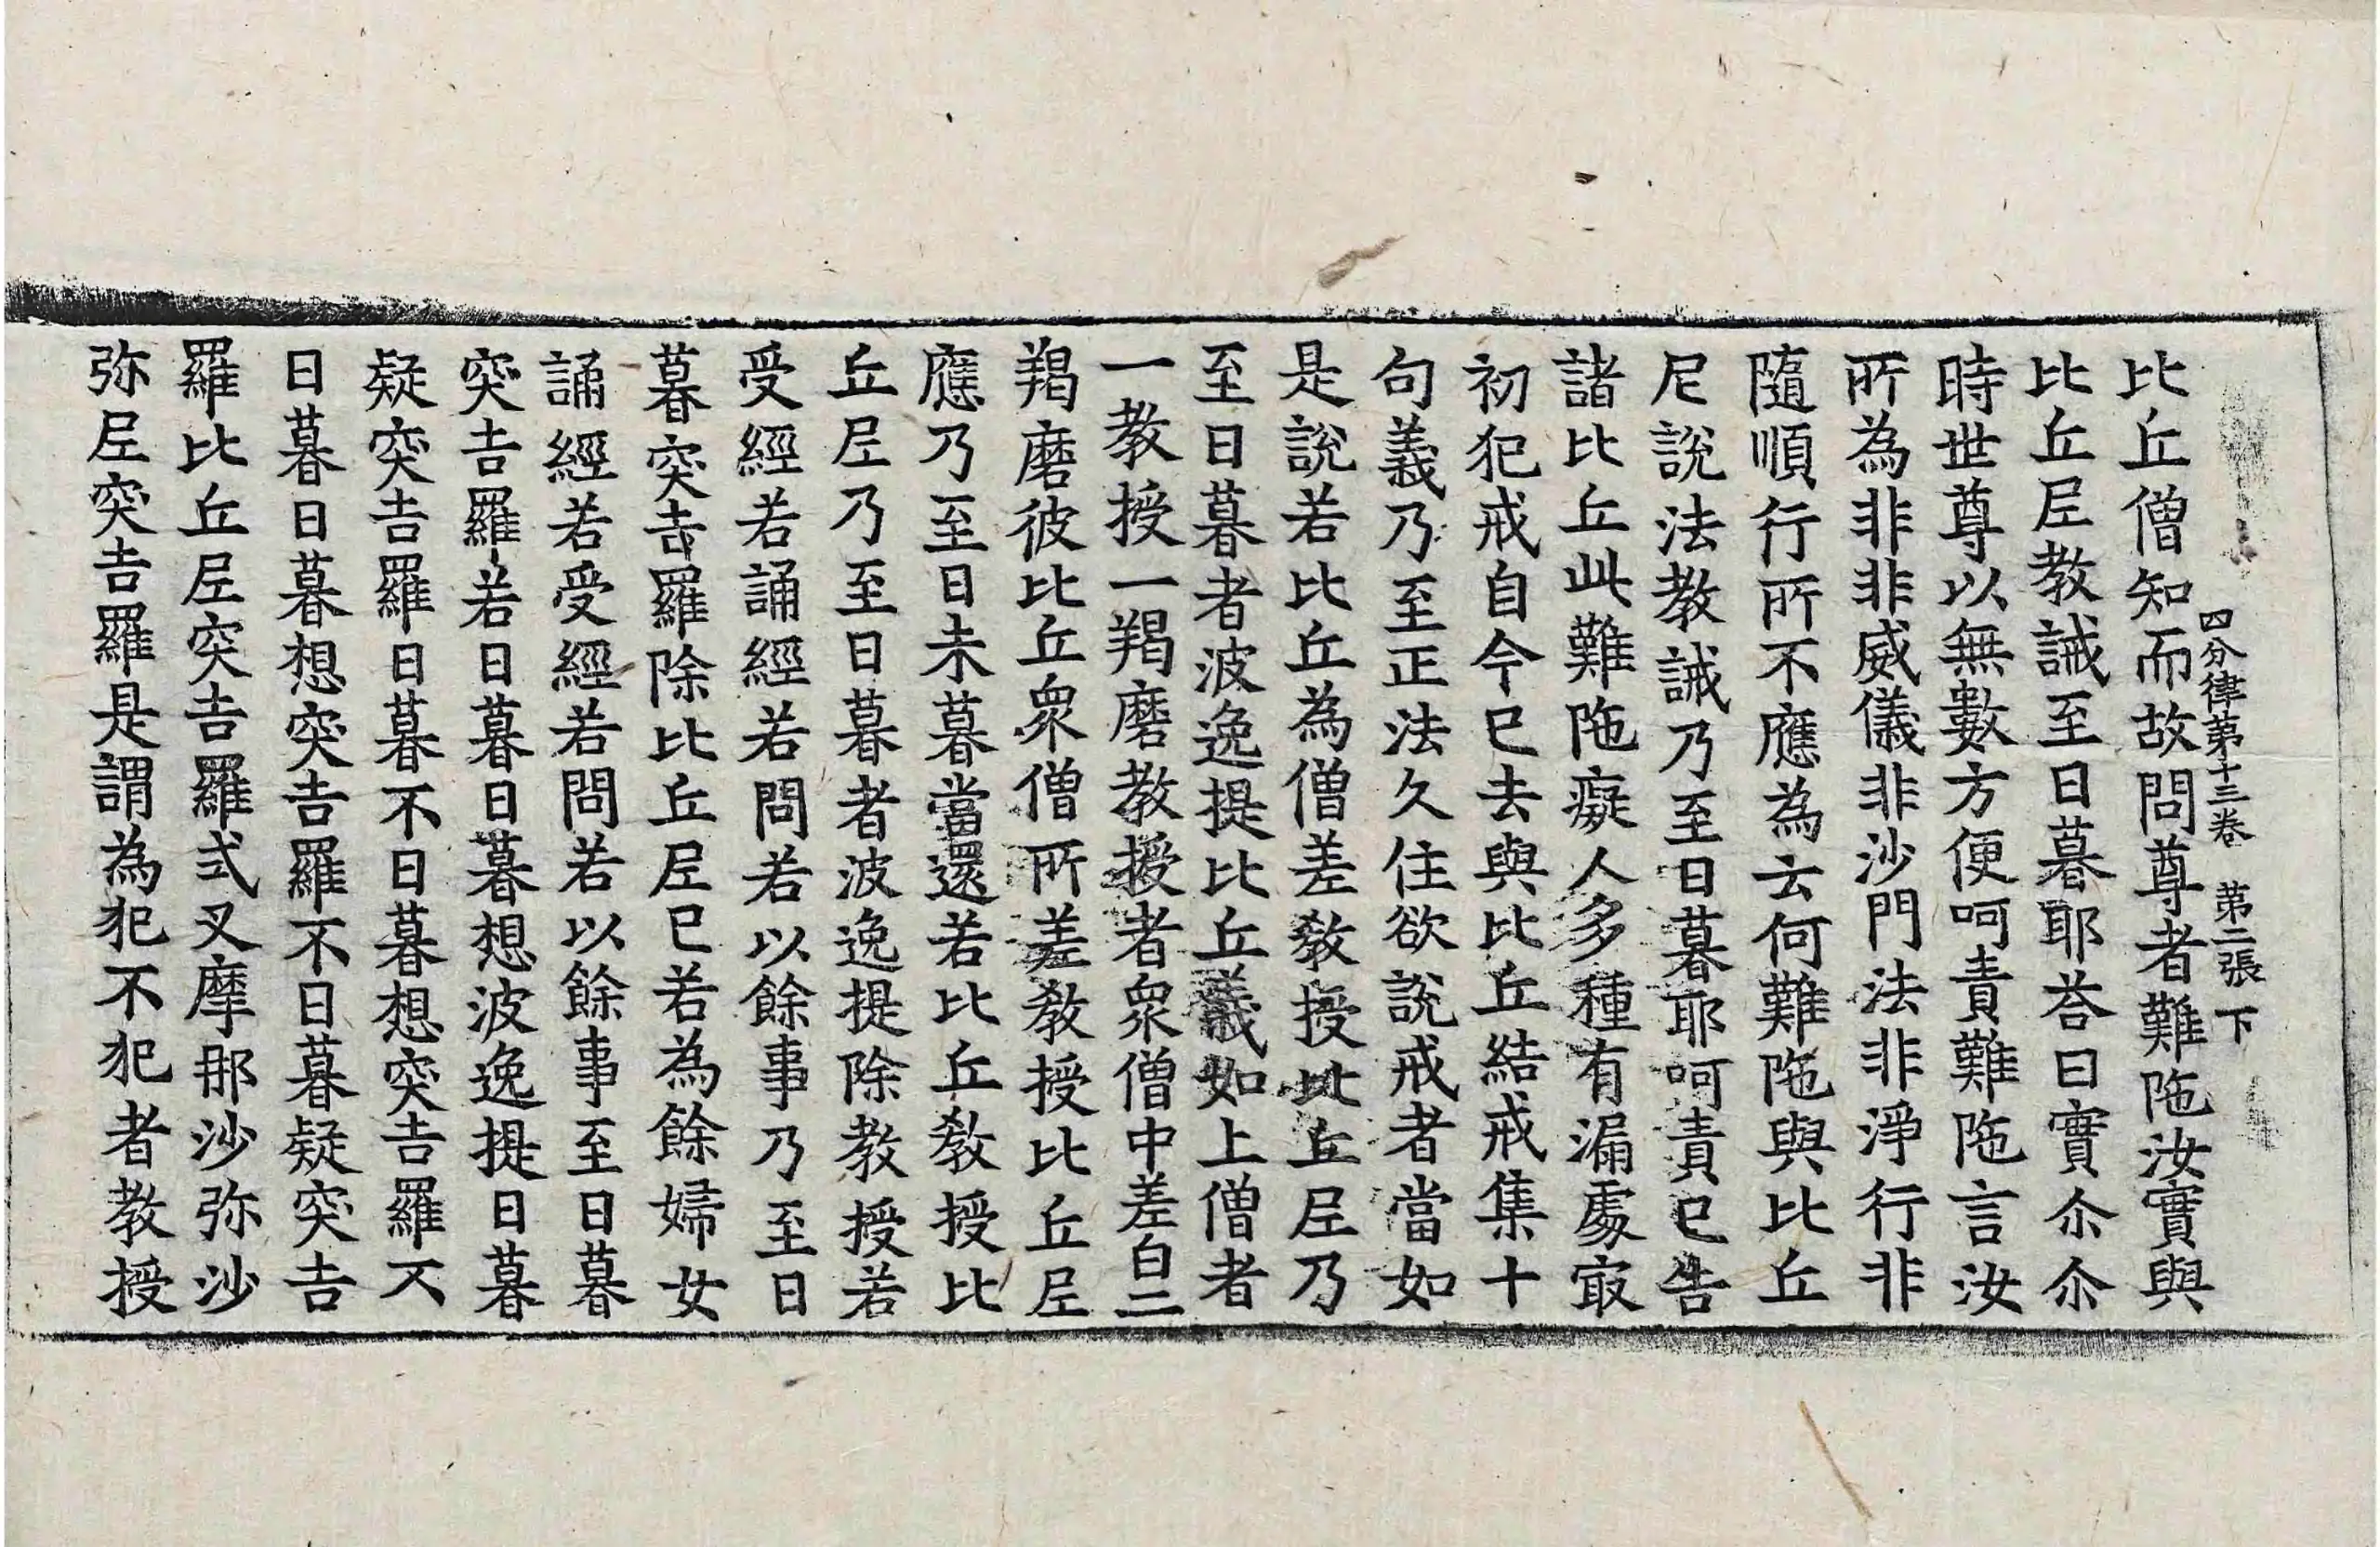 比丘僧知而故問尊者難陁汝實與
四分律第十三卷 第二張 下
比丘𡰱教誡至日暮耶荅曰實尒尒
時世尊以無數方便呵責難陁言汝
所為非非威儀非沙門法非淨行非
隨順行所不應為云何難陁與比丘
尼說法教誡乃至日暮耶呵責已告
諸比丘此難陁癡人多種有漏處㝡
初犯戒自今已去與比丘結戒集十
句義乃至正法久住欲說戒者當如
是說若比丘為僧差教授比丘𡰱乃
至日暮者波逸提比丘義如上僧者
一教授一羯磨教授者眾僧中差白二
羯磨彼比丘眾僧所差教授比丘𡰱
應乃至日未暮當還若比丘教授比
丘𡰱乃至日暮者波逸提除教授若
受經若誦經若問若以餘事乃至日
暮突吉羅除比丘𡰱已若為餘婦女
誦經若受經若問若以餘事至日暮
突吉羅若日暮日暮想波逸提日暮
疑突吉羅日暮不日暮想突吉羅不
日暮日暮想突吉羅不日暮疑突吉
羅比丘𡰱突吉羅式叉摩那沙弥沙
弥𡰱突吉羅是謂為犯不犯者教授